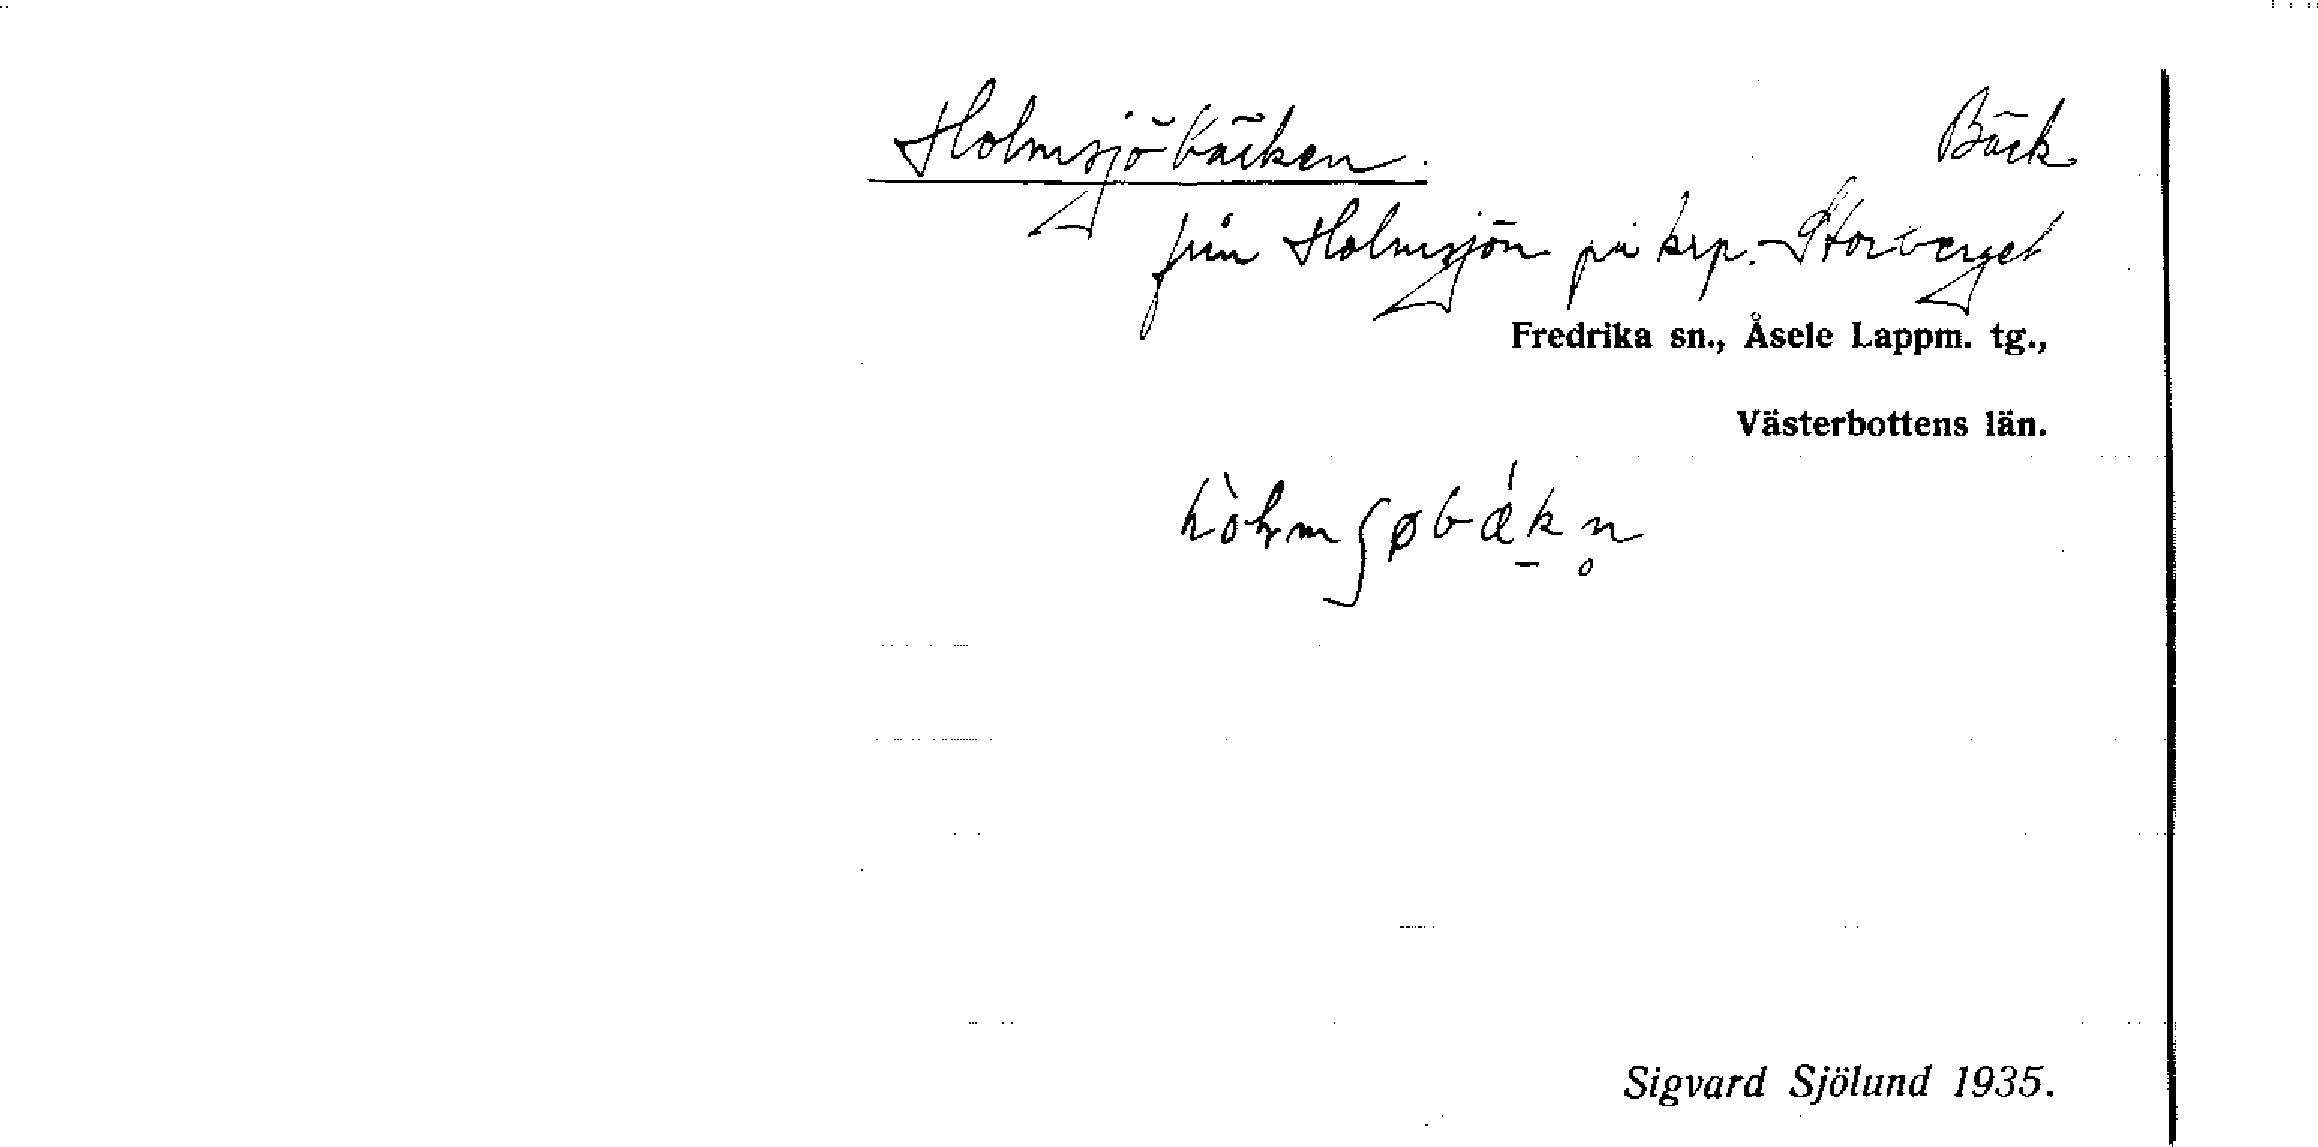 Holmsjöbäcken. Bäck
från Holmsjön på krp. Storberget
Fredrika sn., Åsele Lappm. tg.,
Västerbottens län.
Sigvard Sjölund 1935.